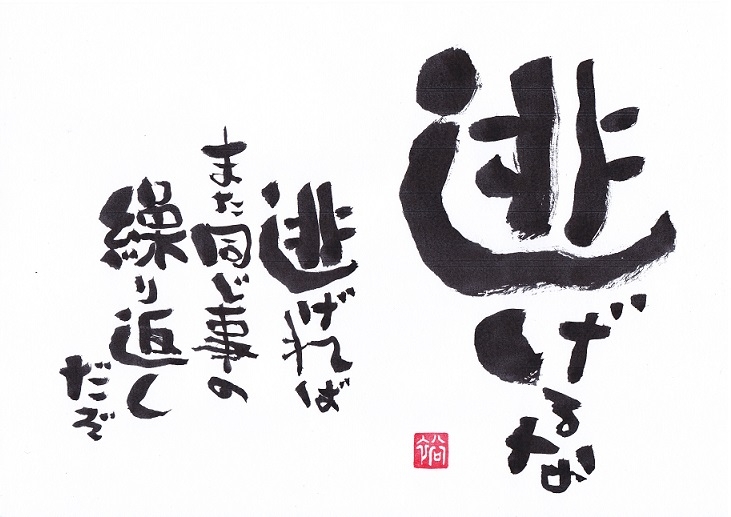 逃げるな
逃げれば
また同じ事の
繰り返し
だぞ
裕